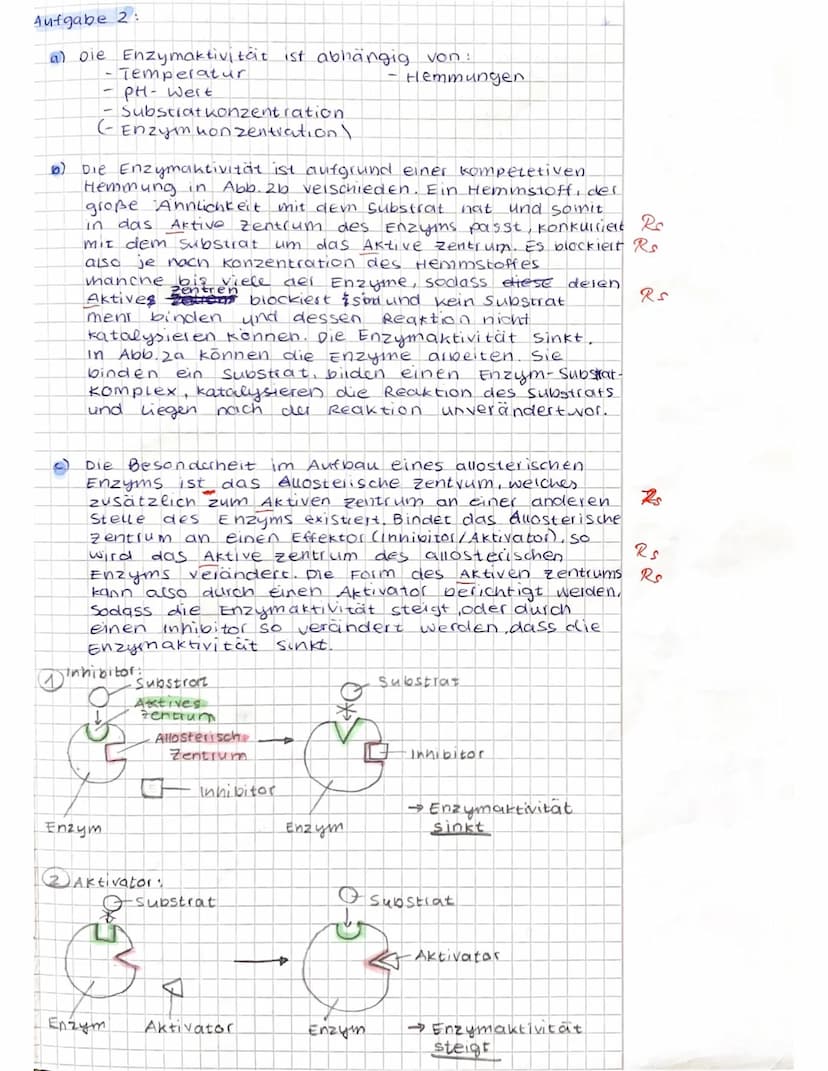 Aufgabe 2:
a) Die Enzymaktivität ist abhängig von:
- Temperatur - Hemmungen
- pH-Wert
- Substratkonzentration
(- Enzymkonzentration)
b) Die Enzymaktivität ist aufgrund einer kompetetiven
Hemmung in Abb. 2b verschieden. Ein Hemmstoff, der
große Ähnlichkeit mit dem Substrat hat und somit
in das Aktive Zentrum des Enzyms passt, konkuriert Rs
mit dem Substrat um das Aktive Zentrum. Es blockiert Rs
also je nach Konzentration des Hemmstoffes
manche bis viele der Enzyme, sodass diese deren
Aktives Zentren blockiert sind und kein Substrat Rs
mehr binden und dessen Reaktion nicht
katalysieren können. Die Enzymaktivität sinkt.
In Abb. 2a können die Enzyme arbeiten. Sie
binden ein Substrat, bilden einen Enzym-Substrat-
Komplex, katalysieren die Reaktion des Substrats
und liegen nach der Reaktion unverändert vor.
c) Die Besonderheit im Aufbau eines allosterischen
Enzyms ist das Allosterische Zentrum, welches
zusätzlich zum Aktiven Zentrum an einer anderen Rs
Stelle des Enzyms existiert. Bindet das Allosterische
Zentrum an einen Effektor (Inhibitor/Aktivator), so
wird das Aktive Zentrum des allosterischen Rs
Enzyms verändert. Die Form des Aktiven Zentrums Rs
kann also durch einen Aktivator berichtigt werden,
sodass die Enzymaktivität steigt, oder durch
einen Inhibitor so verändert werden, dass die
Enzymaktivität sinkt.
1 Inhibitor:
Substrat
Substrat
Aktives
Zentrum
Allosterisches
Zentrum
Inhibitor
Inhibitor
→ Enzymaktivität
sinkt
Enzym
Enzym
2 Aktivator:
Substrat
Substrat
Aktivator
Enzym
Aktivator
Enzym
→ Enzymaktivität
steigt